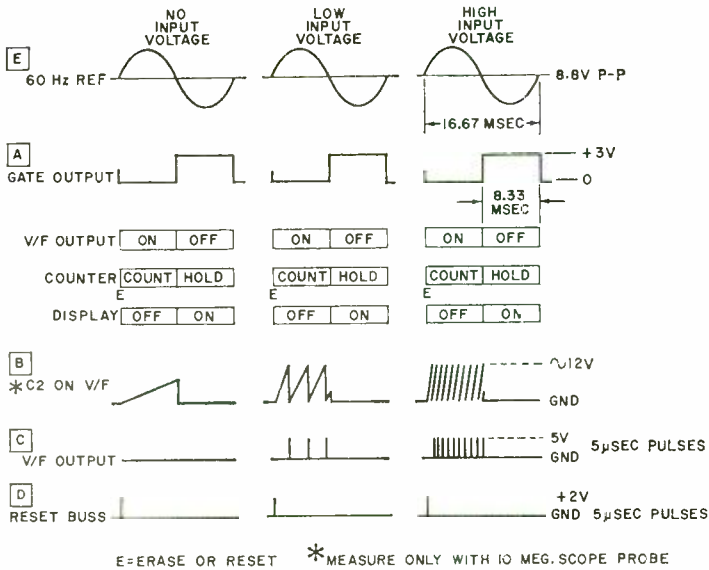 NO INPUT VOLTAGE
LOW INPUT VOLTAGE
HIGH INPUT VOLTAGE
E
60 Hz REF
8.8V P-P
16.67 MSEC
A
GATE OUTPUT
+3V
0
8.33 MSEC
V/F OUTPUT ON OFF ON OFF ON OFF
COUNTER COUNT HOLD COUNT HOLD COUNT HOLD
E E E
DISPLAY OFF ON OFF ON OFF ON
B
*C2 ON V/F
~12V
GND
C
V/F OUTPUT
5V
GND 5µSEC PULSES
D
RESET BUSS
+2V
GND 5µSEC PULSES
E=ERASE OR RESET *MEASURE ONLY WITH 10 MEG. SCOPE PROBE